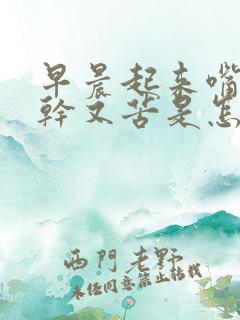 早晨起来嘴
幹又苦是怎
西門老野
未经同意禁止转载